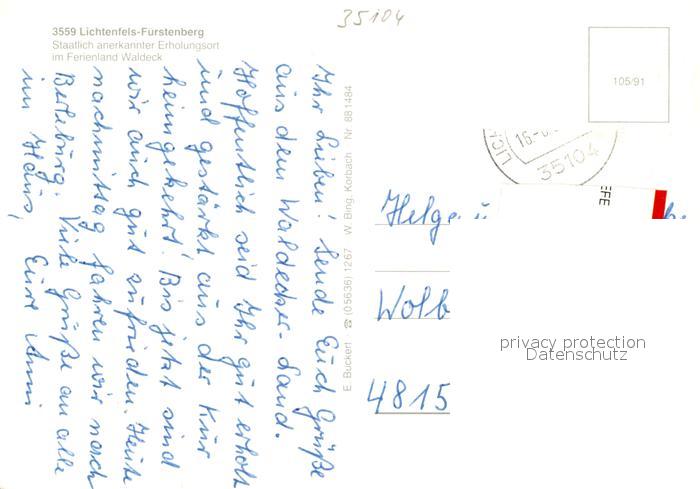 35104
3559 Lichtenfels-Fürstenberg
Staatlich anerkannter Erholungsort
im Ferienland Waldeck
Ihr Lieben! Sende Euch Grüße
aus dem Waldecker-Land.
Hoffentlich seid Ihr gut erholt
und gestärkt aus der Kur
heimgekehrt! Bis jetzt sind
wir auch gut zufrieden. Heute
nachmittag fahren wir nach
Berleburg. Viele Grüße an alle
im Haus, Eure Anni
E. Buckert ☎ (05636) 1267 W. Bing, Korbach Nr. 881484
105/91
LICH
16.-
35104
EFE
Helga
Wolb
4815
privacy protection
Datenschutz